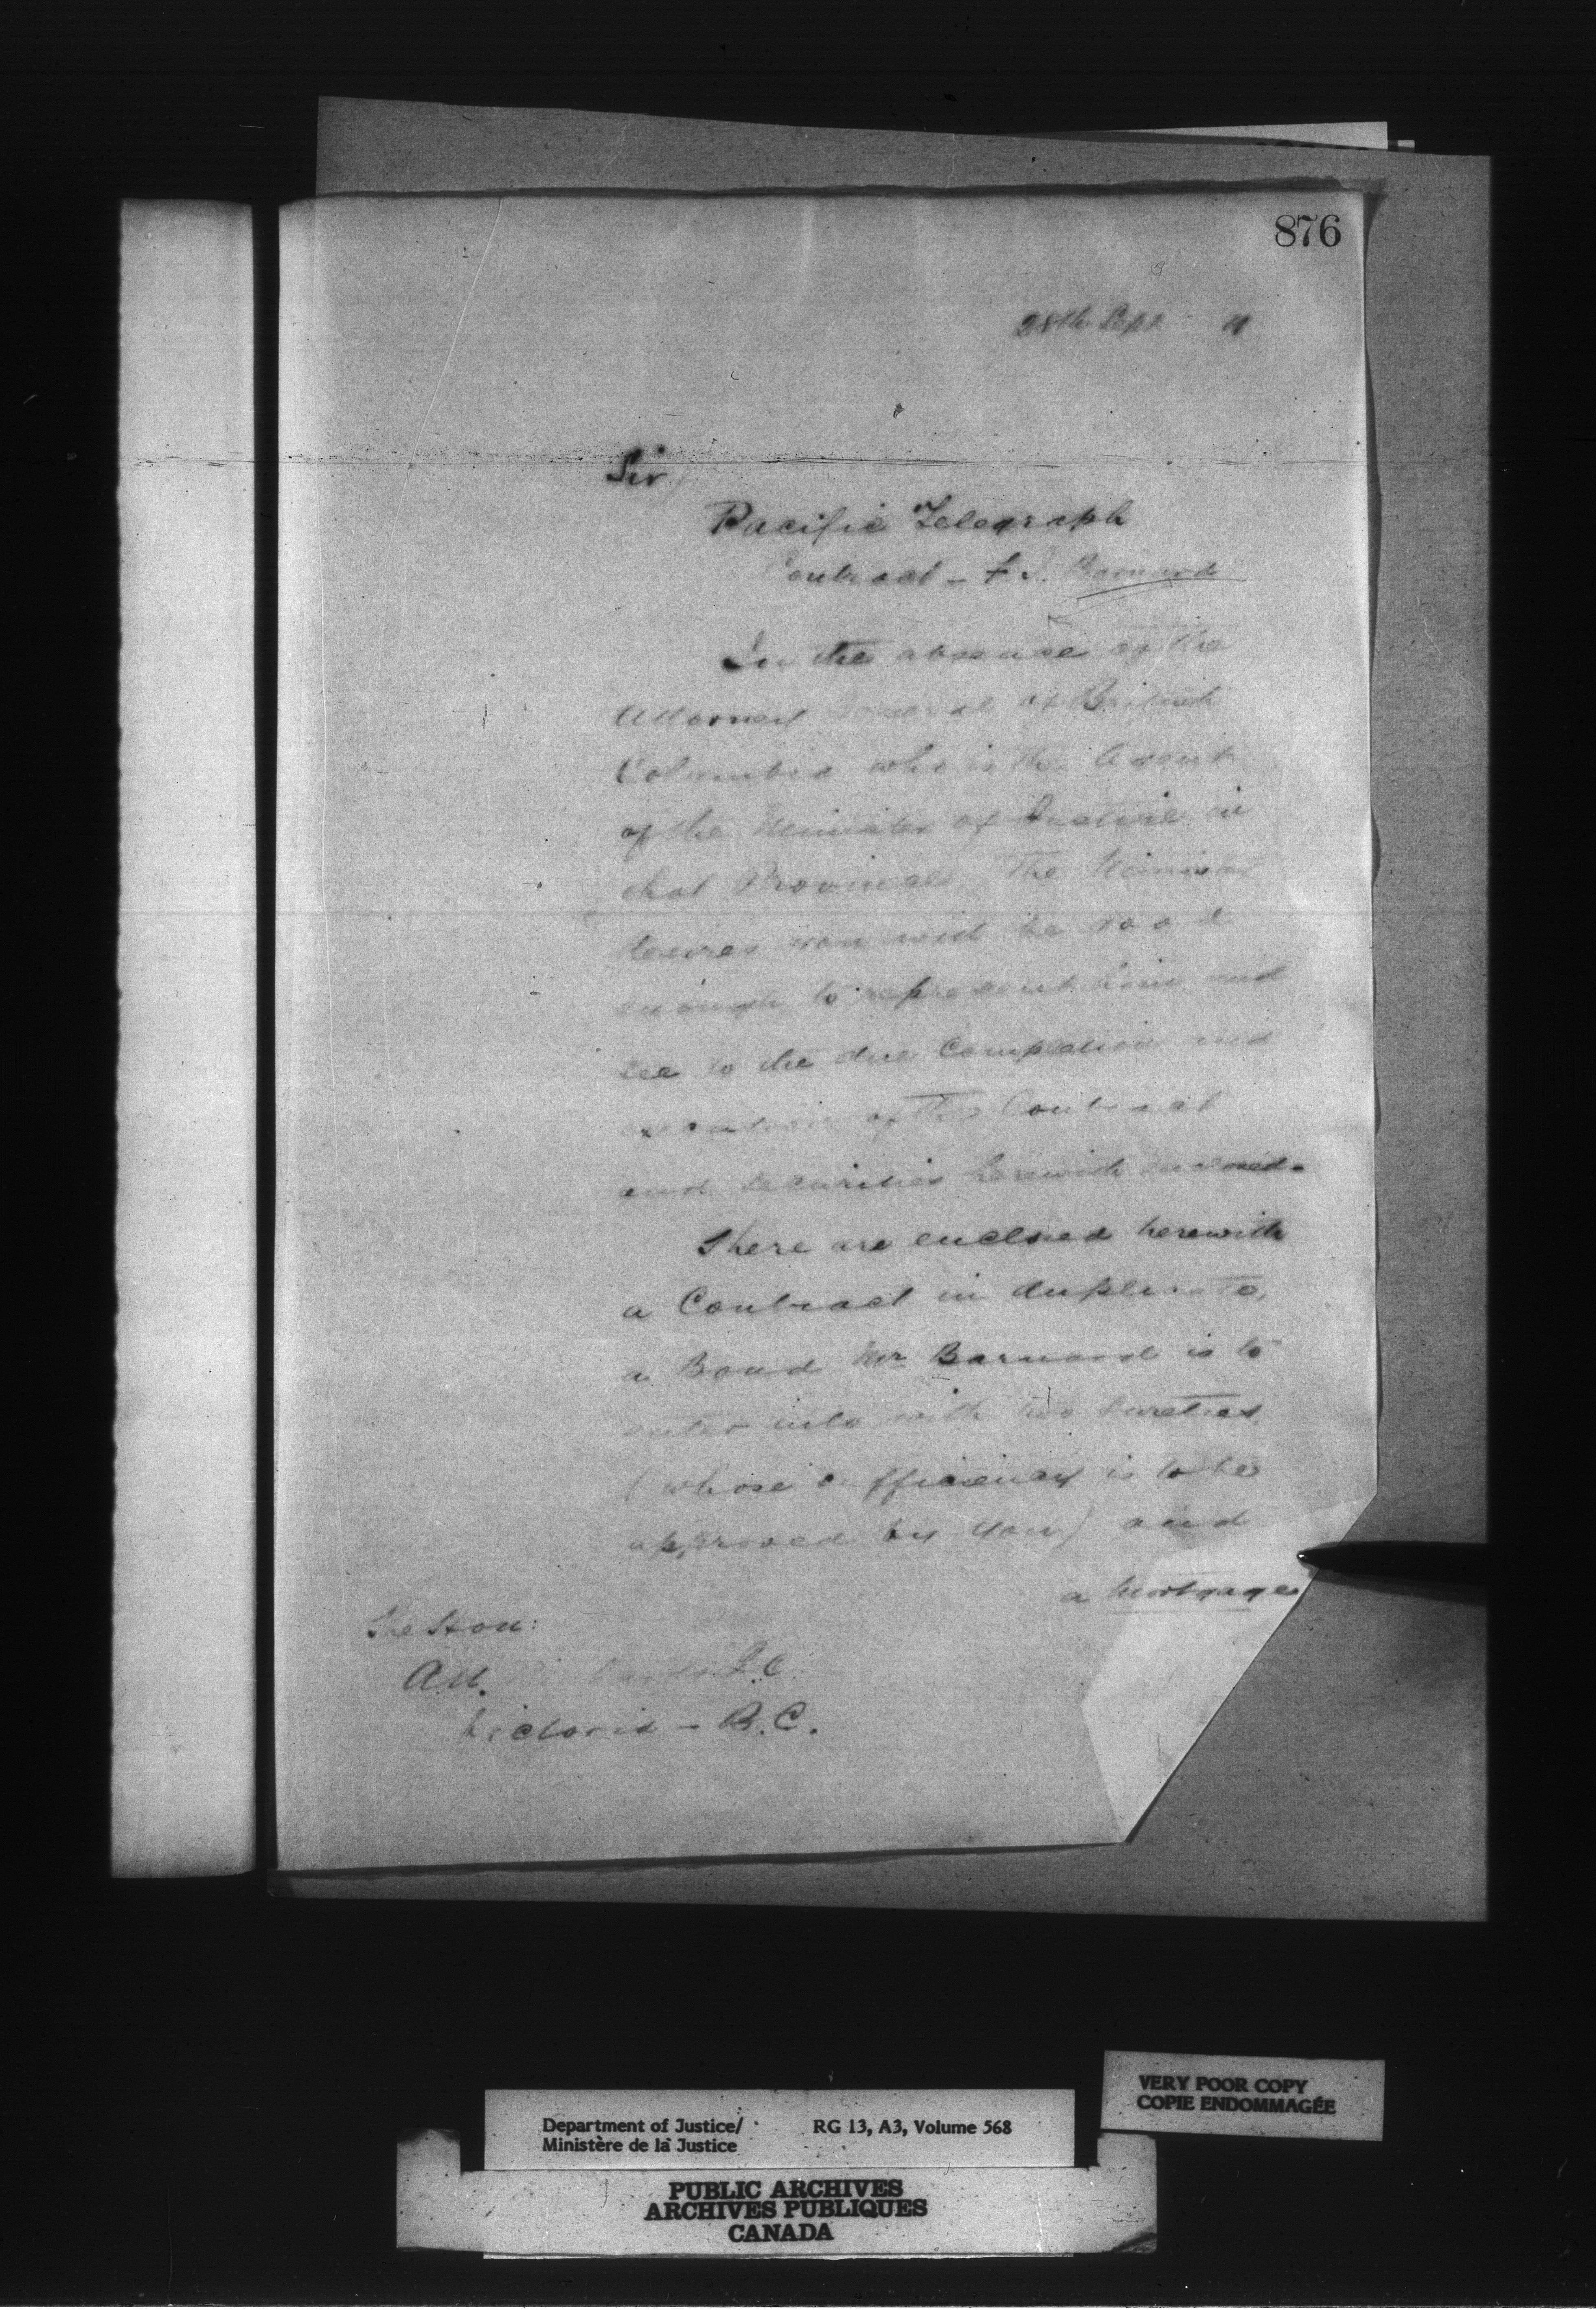 876
28th Sept 4
Sir,
Pacific Telegraph
Contract - F. J. Barnard
In the absence of the
Attorney General of British
Columbia who is the Agent
of the Minister of Justice in
that Province The Minister
desires you will be good
enough to represent him and
see to the due Completion and
execution of the Contract
and securities herewith enclosed.
There are enclosed herewith
a Contract in duplicate,
a Bond Mr Barnard is to
enter into with two Sureties
(whose sufficiency is to be
approved by you) and
a Mortgage
The Hon:
Victoria - B.C.
VERY POOR COPY
COPIE ENDOMMAGÉE
Department of Justice/
Ministère de la Justice
RG 13, A3, Volume 568
PUBLIC ARCHIVES
ARCHIVES PUBLIQUES
CANADA